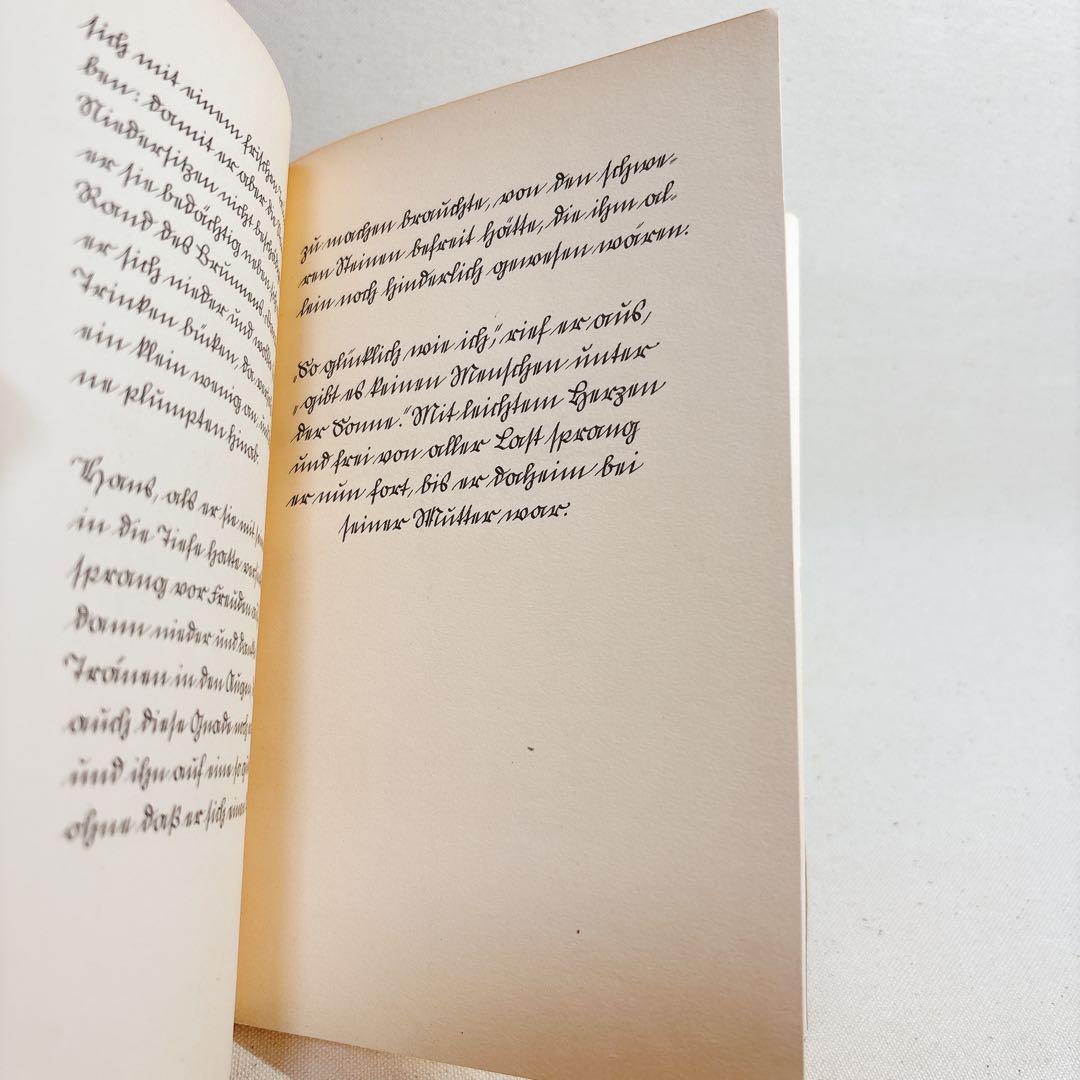 sich mit einem frischen
ben: damit er aber die
Niedersitzen nicht
er sie bedächtig neben sich
Rand des Brunnens.
er sich nieder und wollte
Trinken bücken, da
ein klein wenig an, und
ne plumpten hinab.
Hans, als er sie mit
in die Tiefe hatte
sprang vor Freuden
dann nieder und
Tränen in den Augen,
auch diese Gnade noch
und ihn auf eine so
ohne daß er sich einen
zu machen brauchte, von den schwe-
ren Steinen befreit hätte, die ihm al-
lein noch hinderlich gewesen wären.
„So glücklich wie ich,“ rief er aus,
„gibt es keinen Menschen unter
der Sonne.“ Mit leichtem Herzen
und frei von aller Last sprang
er nun fort, bis er daheim bei
seiner Mutter war.